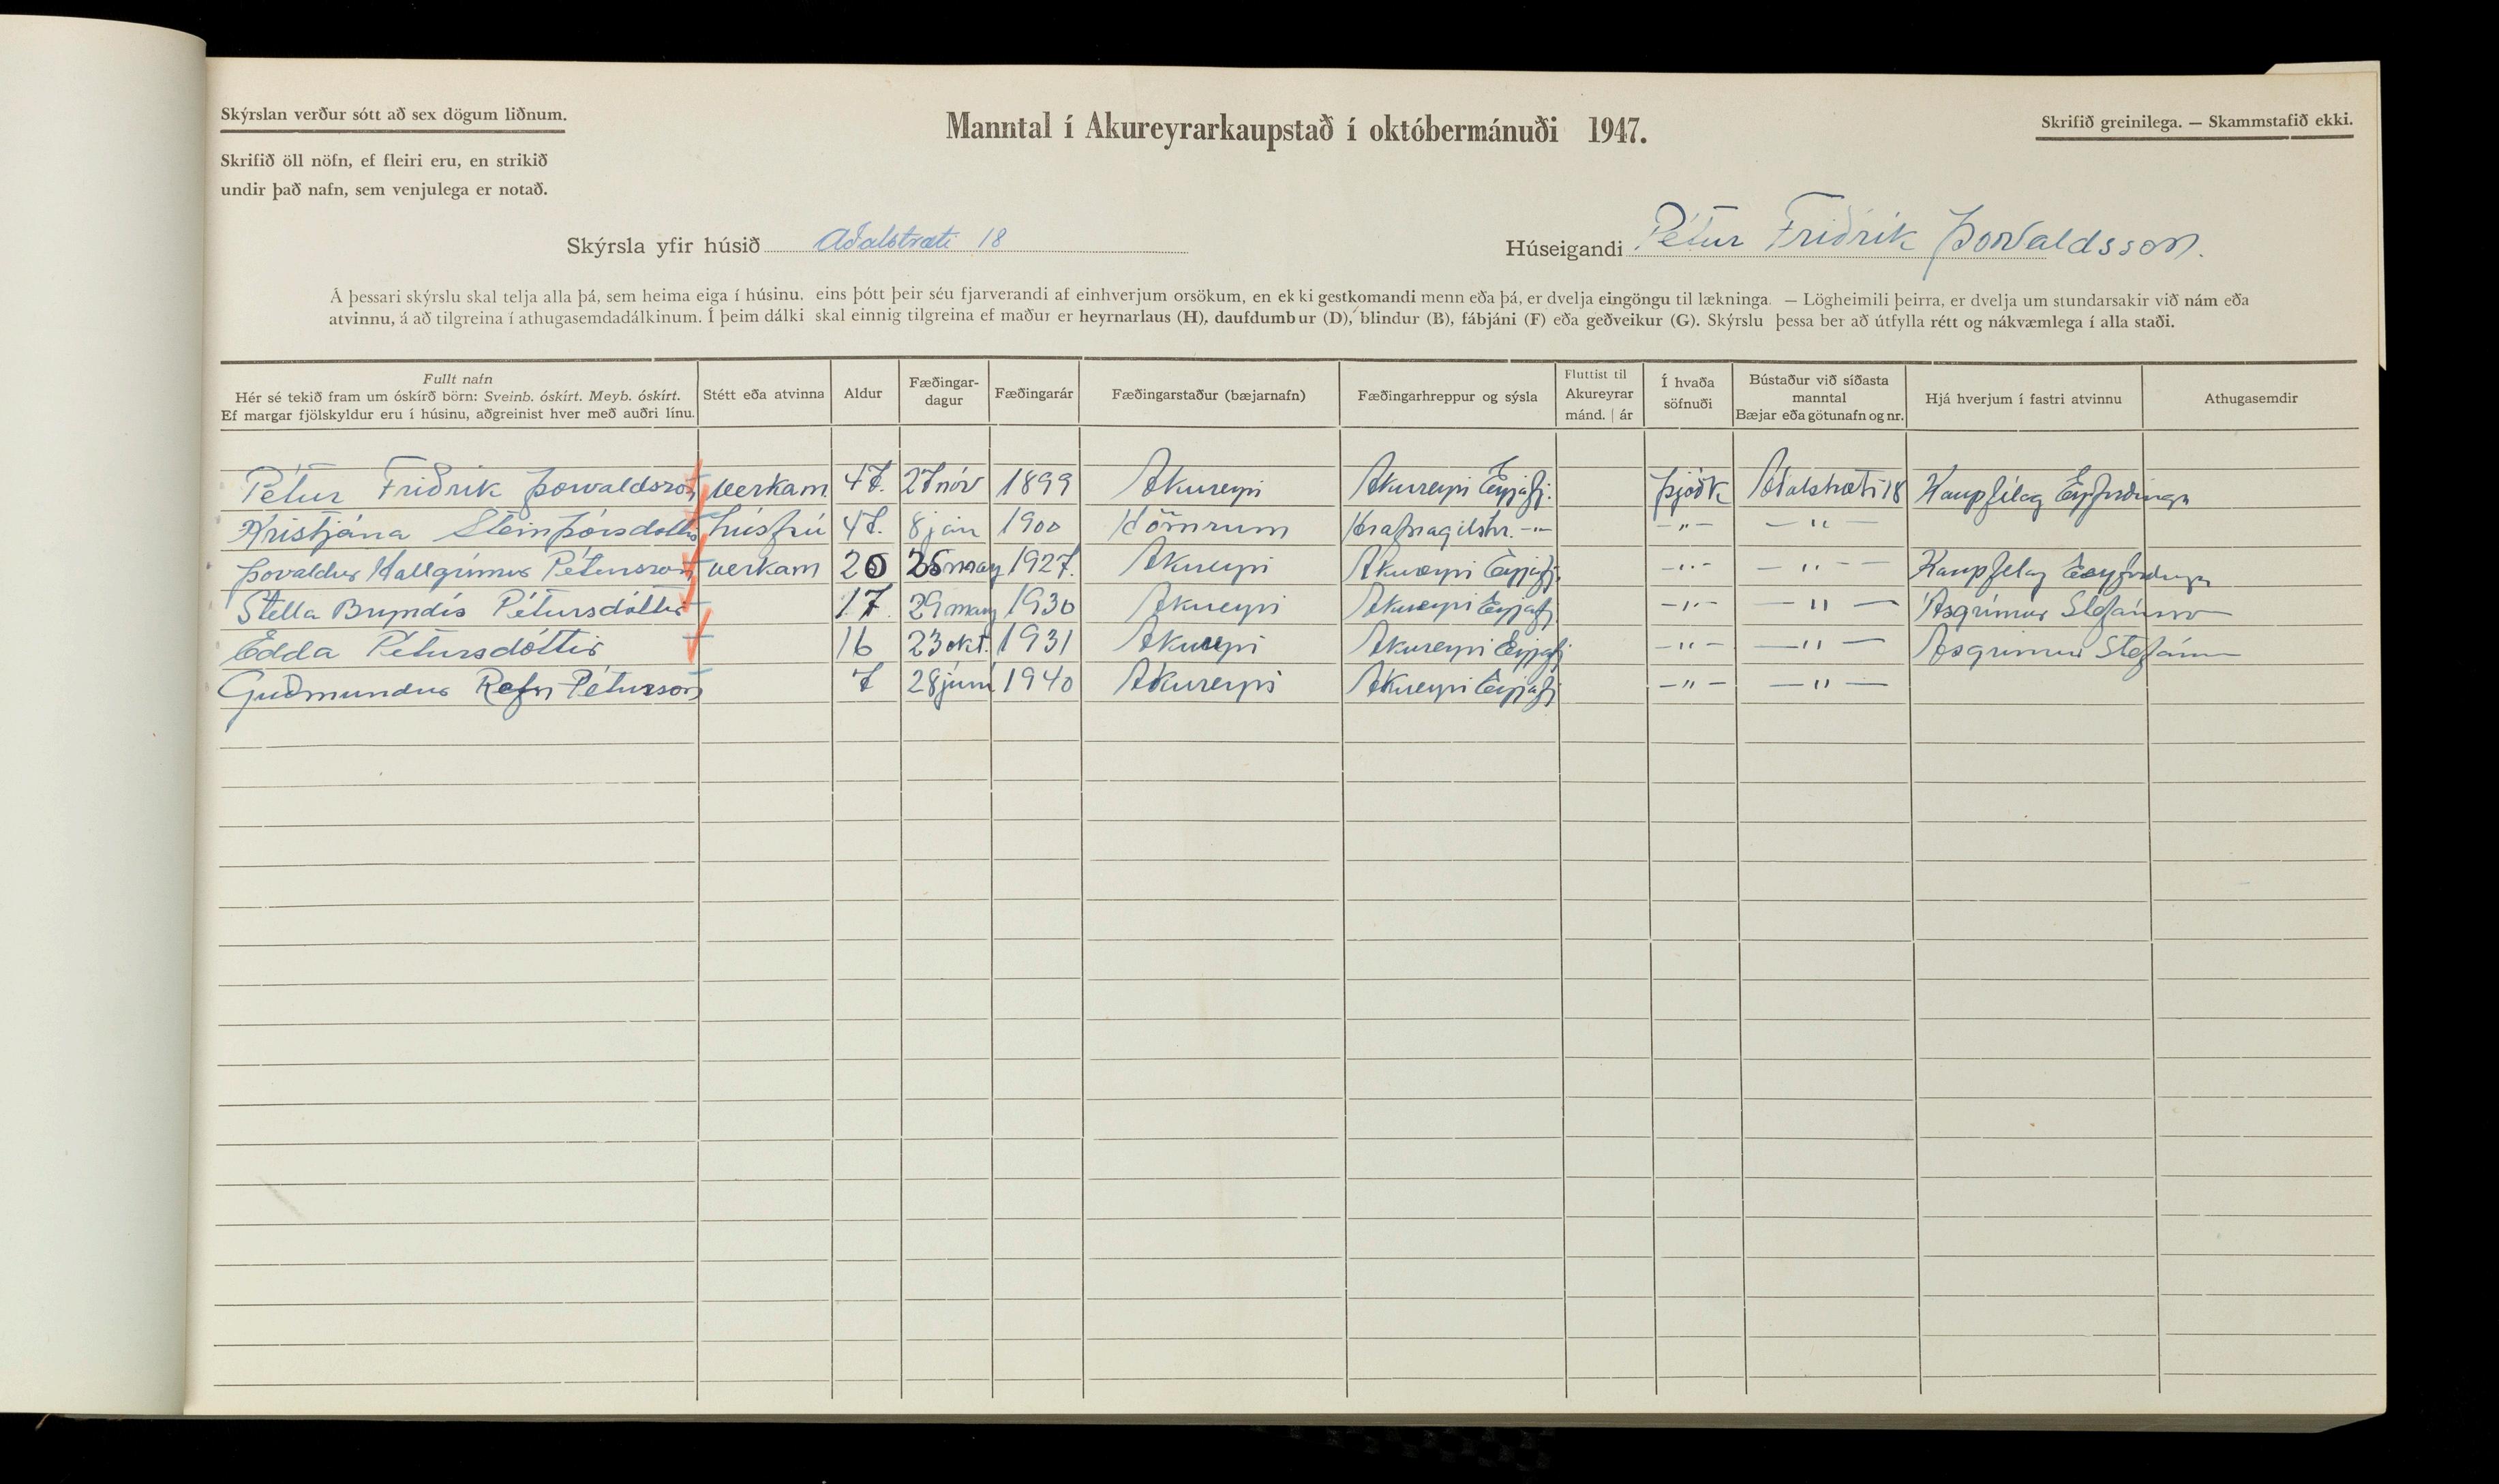 Skýrslan verður sótt að sex dögum liðnum.
Manntal í Akureyrarkaupstað í októbermánuði 1947.
Skrifið greinilega. — Skammstafið ekki.
Skrifið öll nöfn, ef fleiri eru, en strikið
undir það nafn, sem venjulega er notað.
Skýrsla yfir húsið Aðalstræti 18
Húseigandi Pétur Friðrik Þorvaldsson.
Á þessari skýrslu skal telja alla þá, sem heima eiga í húsinu, eins þótt þeir séu fjarverandi af einhverjum orsökum, en ekki gestkomandi menn eða þá, er dvelja eingöngu til lækninga. — Lögheimili þeirra, er dvelja um stundarsakir við nám eða
atvinnu, á að tilgreina í athugasemdadálkinum. Í þeim dálki skal einnig tilgreina ef maður er heyrnarlaus (H), daufdumbur (D), blindur (B), fábjáni (F) eða geðveikur (G). Skýrslu þessa ber að útfylla rétt og nákvæmlega í alla staði.
Fullt nafn
Hér sé tekið fram um óskírð börn: Sveinb. óskírt. Meyb. óskírt.
Ef margar fjölskyldur eru í húsinu, aðgreinist hver með auðri línu.
Stétt eða atvinna
Aldur
Fæðingar-
dagur
Fæðingarár
Fæðingarstaður (bæjarnafn)
Fæðingarhreppur og sýsla
Fluttist til
Akureyrar
mánd. | ár
Í hvaða
söfnuði
Bústaður við síðasta
manntal
Bæjar eða götunafn og nr.
Hjá hverjum í fastri atvinnu
Athugasemdir
Pétur Friðrik Þorvaldsson verkam. 47. 27 nóv 1899 Akureyri Akureyri Eyjafj. Þjóðk Aðalstræti 18 Kaupfélag Eyfirðinga
Kristjána Steinþórsdóttir húsfrú 47. 8 jan 1900 Hömrum Hrafnagilshr. -"- -"- -"-
Þovaldur Hallgrímur Pétursson verkam 20 1927. Akureyri Akureyri Eyjafj. -"- -"- Kaupfélag Eeyfirðinga
Stella Bryndís Pétursdóttir 17. 29 1930 Akureyri Akureyri Eyjafj -"- -"- Ásgrímur Stefánsso
Edda Pétursdóttir 16 23 okt. 1931 Akureyri Akureyri Eyjafj -"- -"- Asgrimur Stefánn
Guðmundur Refn Pétursson 7 28 júní 1940 Akureyri Akureyri Eyjafj -"- -"-